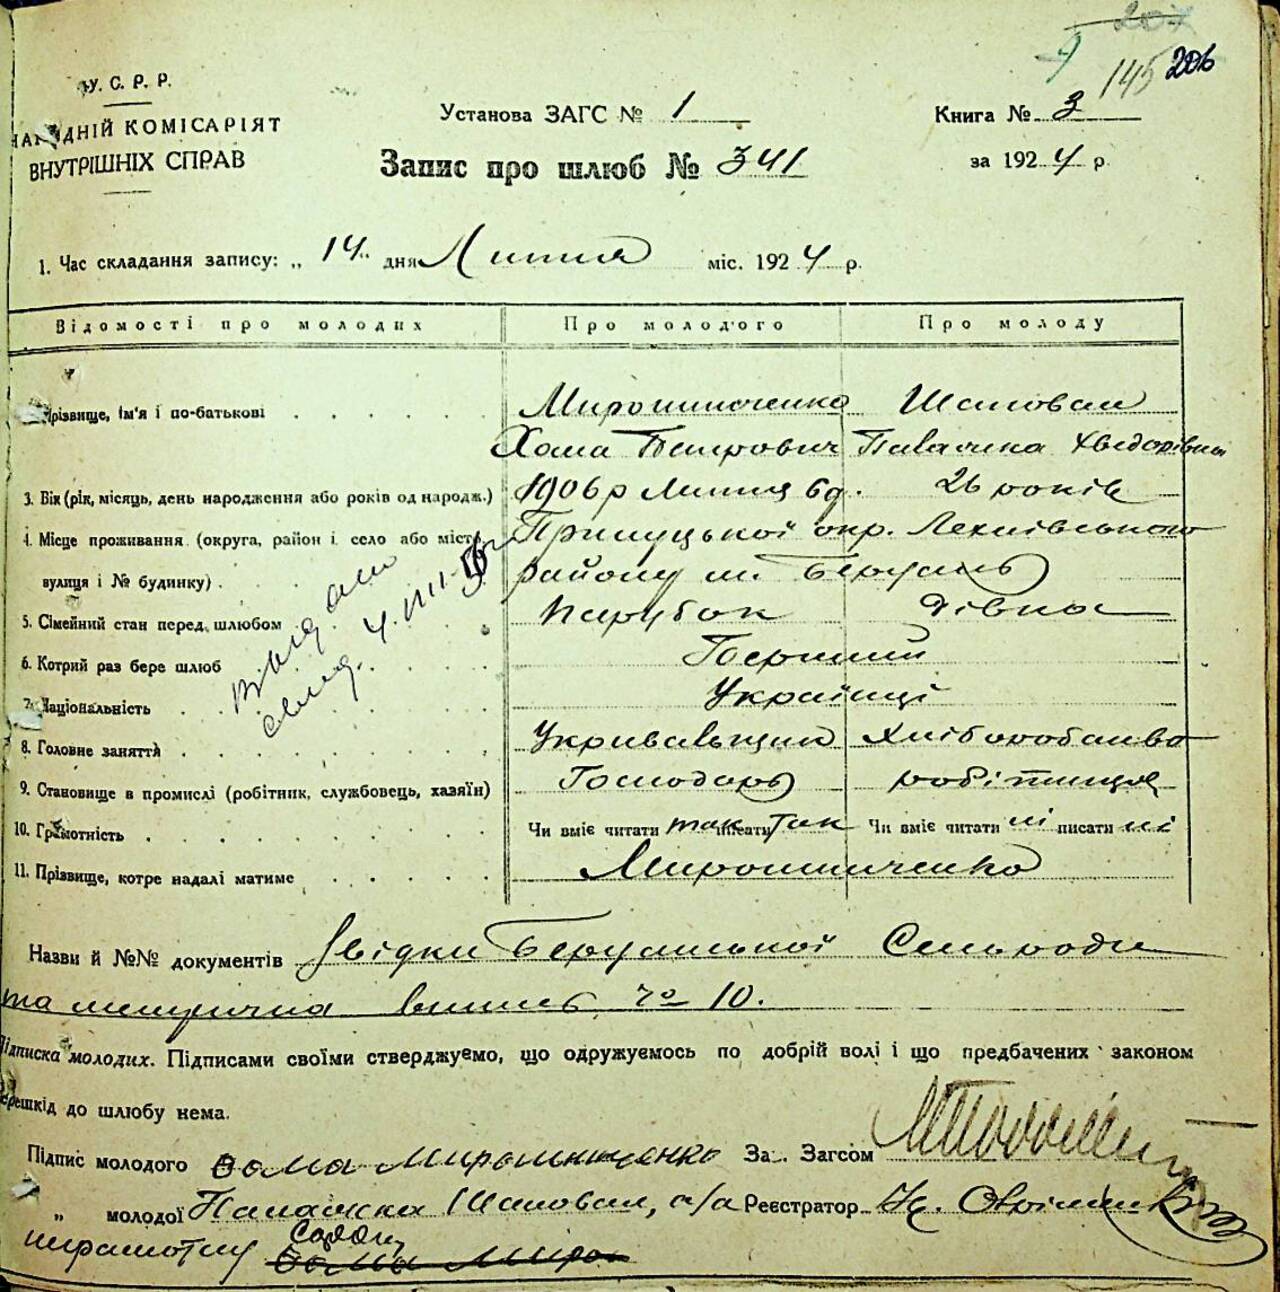 У. С. Р. Р.
НАРОДНІЙ КОМІСАРІЯТ
ВНУТРІШНІХ СПРАВ
207
145 206
Установа ЗАГС № 1
Книга № 3
Запис про шлюб № 341
за 1924 р
1. Час складання запису: „14" дня Липня міс. 1924 р.
Відомості про молодих Про молодого Про молоду
Прізвище, ім'я і по-батькові Мирошниченко Шаповал
Хома Петрович Палажка Хведорівна
3. Вік (рік, місяць, день народження або років од народж.) 1906 р Липц 6 д. 26 років
4. Місце проживання (округа, район і село або місто, Прилуцької окр. Лехнівського
вулиця і № будинку) району м.
5. Сімейний стан перед шлюбом парубок дівка
6. Котрий раз бере шлюб Перший
7. Національність Українці
8. Головне заняття Хліборобство
9. Становище в промислі (робітник, службовець, хазяїн) Господарь робітниця
10. Грамотність Чи вміє читати так писати так Чи вміє читати ні писати ні
11. Прізвище, котре надалі матиме Мирошниченко
Видано
свид. 4.VIII
Назви й №№ документів Звідки Сельради
та метрична випись № 10.
Підписка молодих. Підписами своїми стверджуємо, що одружуємось по добрій волі і що предбачених законом
перешкід до шлюбу нема.
Підпис молодого Хома Мирошниченко За.. Загсом
„ молодої Палажка Шаповал, а/а Реєстратор